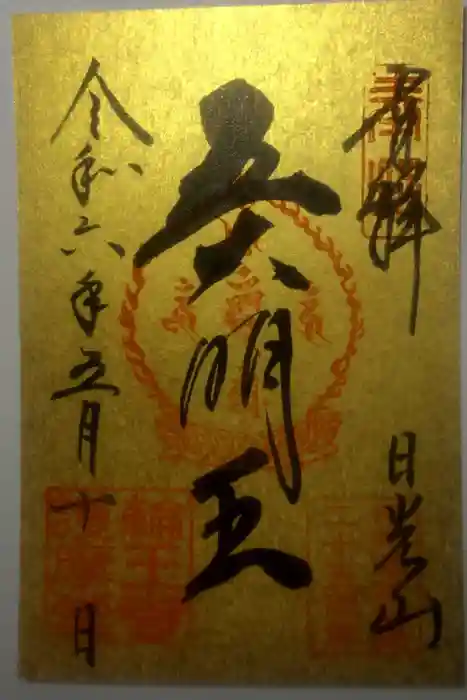 奉拝
日光山
五大明王
令和六年五月十日